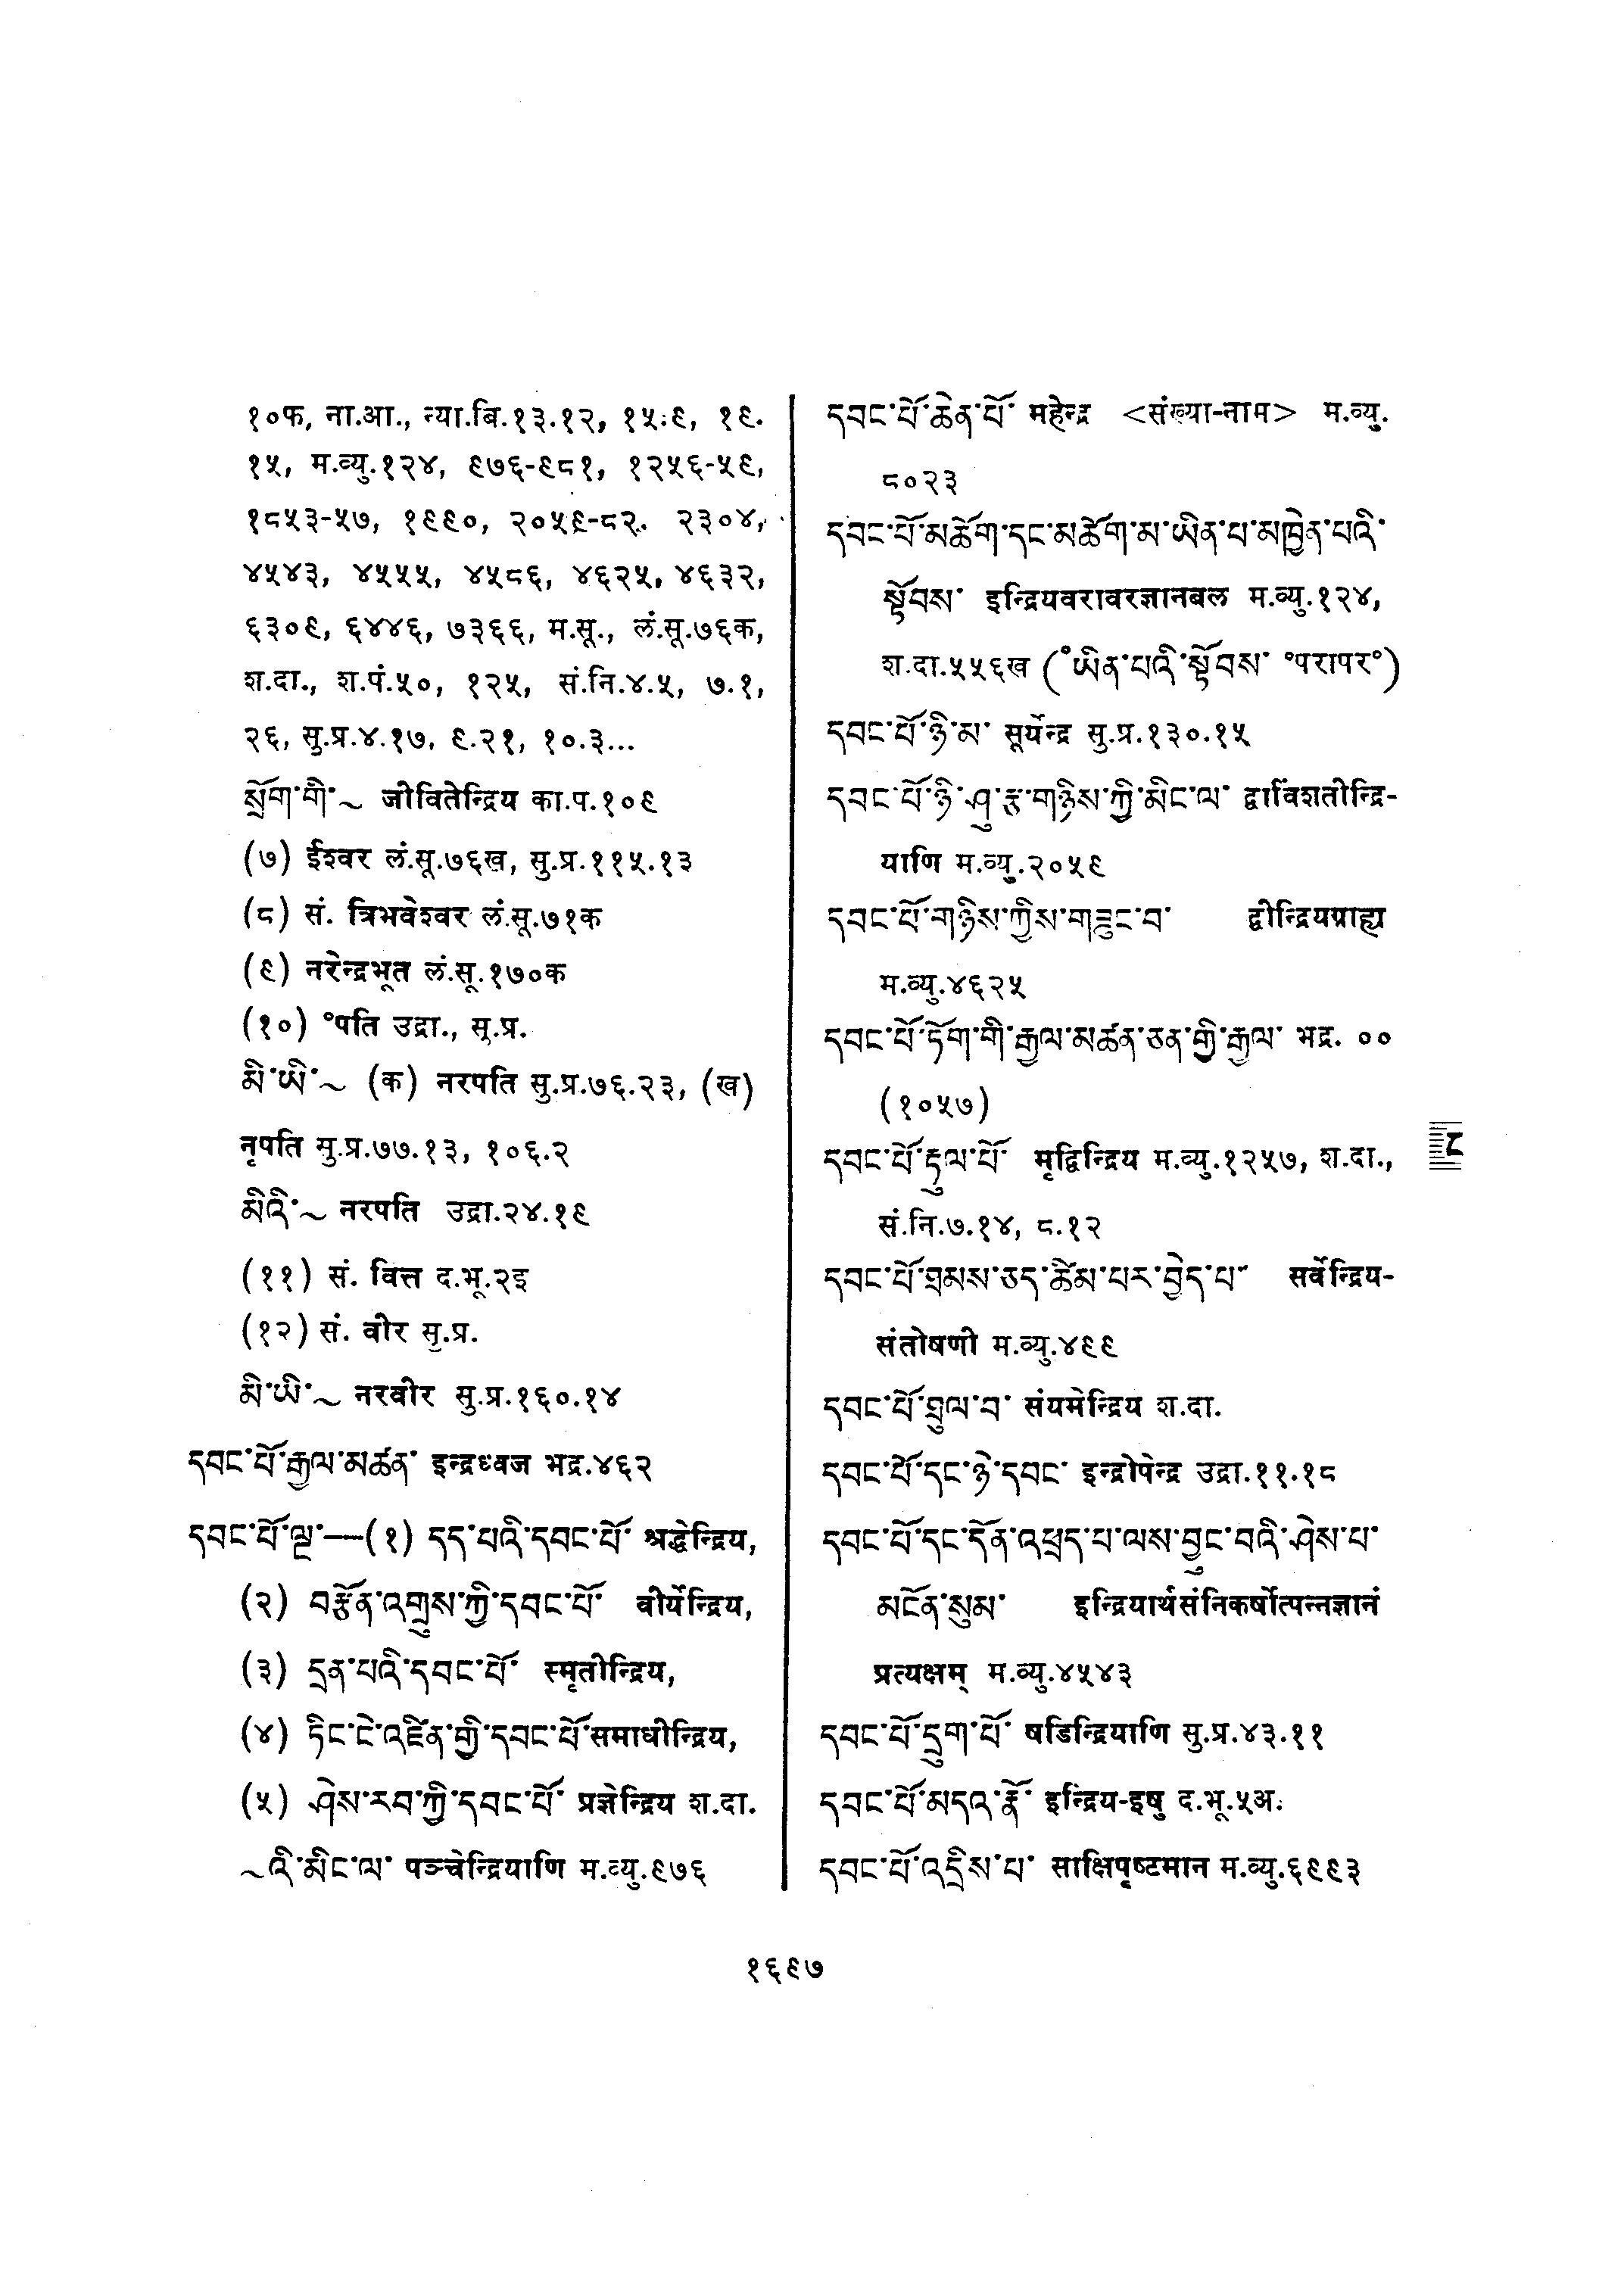 १०फ, ना.आ., न्या.बि.१३.१२, १५.९, १९.
१५, म.व्यु.१२४, ९७६-९८१, १२५६-५९,
१८५३-५७, १९९०, २०५९-८२. २३०४,
४५४३, ४५५५, ४५८६, ४६२५, ४६३२,
६३०९, ६४४६, ७३६६, म.सू., लं.सू.७६क,
श.दा., श.पं.५०, १२५, सं.नि.४.५, ७.१,
२६, सु.प्र.४.१७, ९.२१, १०.३...
སྲོག་གི་~ जीवितेन्द्रिय का.प.१०९
(७) ईश्वर लं.सू.७६ख, सु.प्र.११५.१३
(८) सं. त्रिभवेश्वर लं.सू.७१क
(९) नरेन्द्रभूत लं.सू.१७०क
(१०) °पति उद्रा., सु.प्र.
མི་ཡི་~ (क) नरपति सु.प्र.७६.२३, (ख)
नृपति सु.प्र.७७.१३, १०६.२
མིའི་~ नरपति उद्रा.२४.१९
(११) सं. वित्त द.भू.२इ
(१२) सं. वीर सु.प्र.
མི་ཡི་~ नरवीर सु.प्र.१६०.१४
དབང་པོ་རྒྱལ་མཚན་ इन्द्रध्वज भद्र.४६२
དབང་པོ་ལྔ་—(१) དད་པའི་དབང་པོ་ श्रद्धेन्द्रिय,
(२) བརྩོན་འགྲུས་ཀྱི་དབང་པོ་ वीर्येन्द्रिय,
(३) དྲན་པའི་དབང་པོ་ स्मृतीन्द्रिय,
(४) ཏིང་ངེ་འཛིན་གྱི་དབང་པོ་ समाधीन्द्रिय,
(५) ཤེས་རབ་ཀྱི་དབང་པོ་ प्रज्ञेन्द्रिय श.दा.
~འི་མིང་ལ་ पञ्चेन्द्रियाणि म.व्यु.९७६
དབང་པོ་ཆེན་པོ་ महेन्द्र <संख्या-नाम> म.व्यु.
८०२३
དབང་པོ་མཆོག་དང་མཆོག་མ་ཡིན་པ་མཁྱེན་པའི་
སྟོབས་ इन्द्रियवरावरज्ञानबल म.व्यु.१२४,
श.दा.५५६ख (°ཡིན་པའི་སྟོབས་ °परापर°)
དབང་པོ་ཉི་མ་ सूर्येन्द्र सु.प्र.१३०.१५
དབང་པོ་ཉི་ཤུ་རྩ་གཉིས་ཀྱི་མིང་ལ་ द्वाविंशतीन्द्रि-
याणि म.व्यु.२०५९
དབང་པོ་གཉིས་ཀྱིས་གཟུང་བ་ द्वीन्द्रियग्राह्य
म.व्यु.४६२५
དབང་པོ་ཏོག་གི་རྒྱལ་མཚན་ཅན་གྱི་རྒྱལ་ भद्र. ००
(१०५७)
དབང་པོ་རྟུལ་པོ་ मृद्विन्द्रिय म.व्यु.१२५७, श.दा.,
सं.नि.७.१४, ८.१२
དབང་པོ་ཐམས་ཅད་ཚིམ་པར་བྱེད་པ་ सर्वेन्द्रिय-
संतोषणी म.व्यु.४९९
དབང་པོ་ཐུལ་བ་ संयमेन्द्रिय श.दा.
དབང་པོ་དང་ཉེ་དབང་ इन्द्रोपेन्द्र उद्रा.११.१८
དབང་པོ་དང་དོན་འཕྲད་པ་ལས་བྱུང་བའི་ཤེས་པ་
མངོན་སུམ་ इन्द्रियार्थसंनिकर्षोत्पन्नज्ञानं
प्रत्यक्षम् म.व्यु.४५४३
དབང་པོ་དྲུག་པོ་ षडिन्द्रियाणि सु.प्र.४३.११
དབང་པོ་མདའ་རྣོ་ इन्द्रिय-इषु द.भू.५अ.
དབང་པོ་འདྲིས་པ་ साक्षिपृष्टमान म.व्यु.६९९३
१६९७